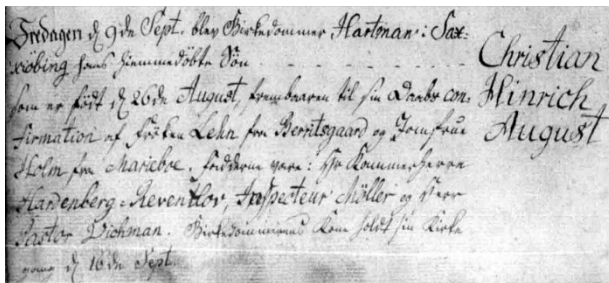 Fredagen d 9de Sept. blev Birkedommer Hartman i Sax=
kiöbing hans hiemmedöbte Sön
Christian
Hinrich
August
som er födt d 26de August, frembaaren til sin Daabs con=
firmation af Fröken Lehn fra Berritsgaard og Jomfrue
Holm fra Mariboe. Fadderne vare: Hr Kammerherre
Hardenberg=Reventlov, Inspecteur Möller og Herr
Pastor Vichman. Birkedommerens Kone holdt sin Kirke
gang d 16de Sept.